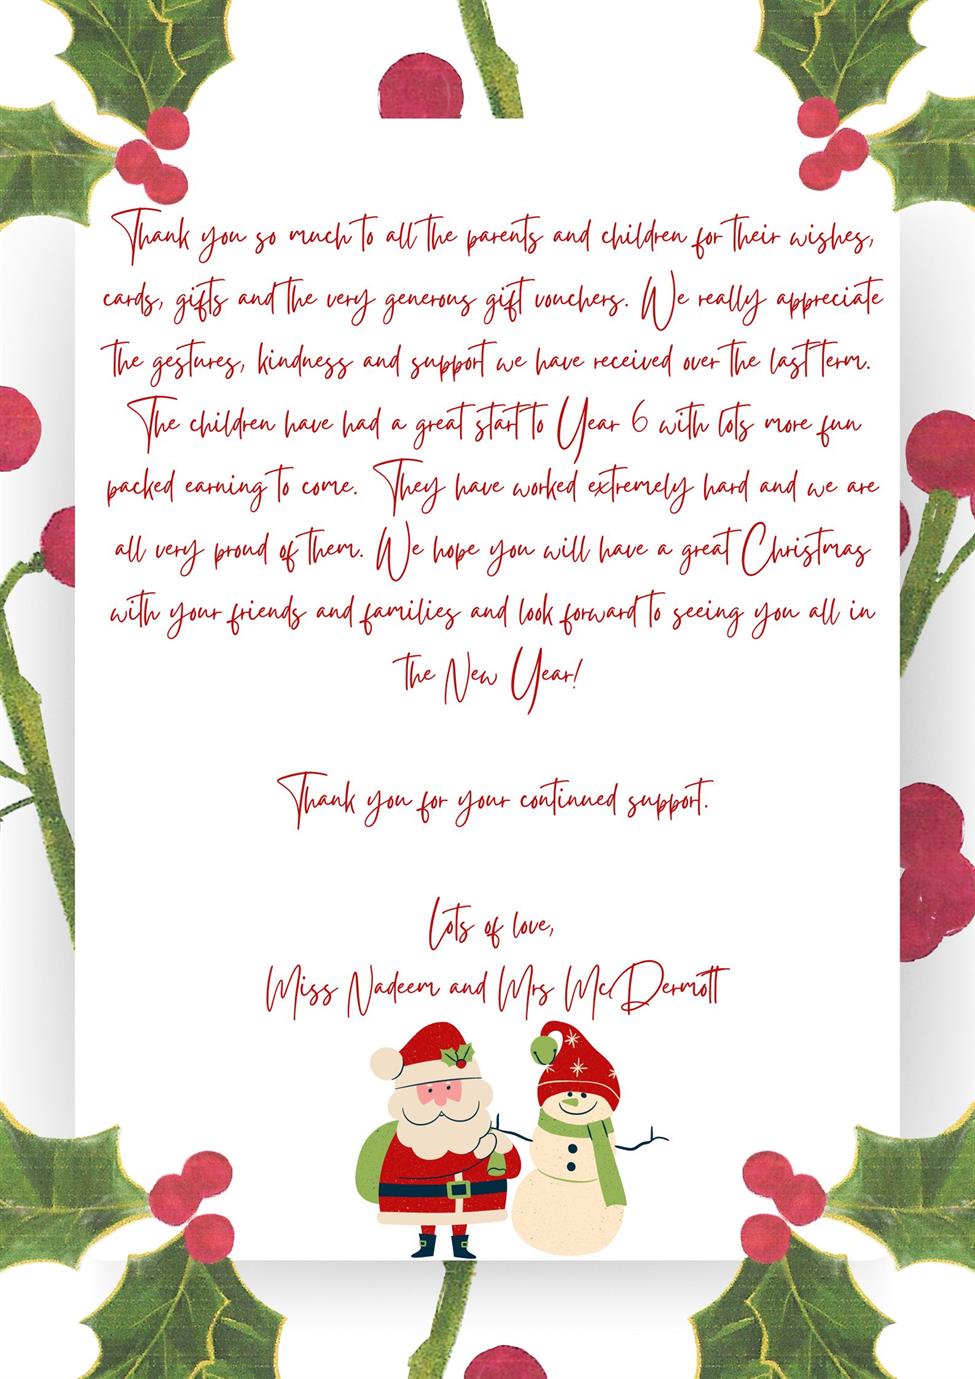 Thank you so much to all the parents and children for their wishes,
cards, gifts and the very generous gift vouchers. We really appreciate
the gestures, kindness and support we have received over the last term.
The children have had a great start to Year 6 with lots more fun
packed earning to come. They have worked extremely hard and we are
all very proud of them. We hope you will have a great Christmas
with your friends and families and look forward to seeing you all in
the New Year!
Thank you for your continued support.
Lots of love,
Miss Nadeem and Mrs McDermott